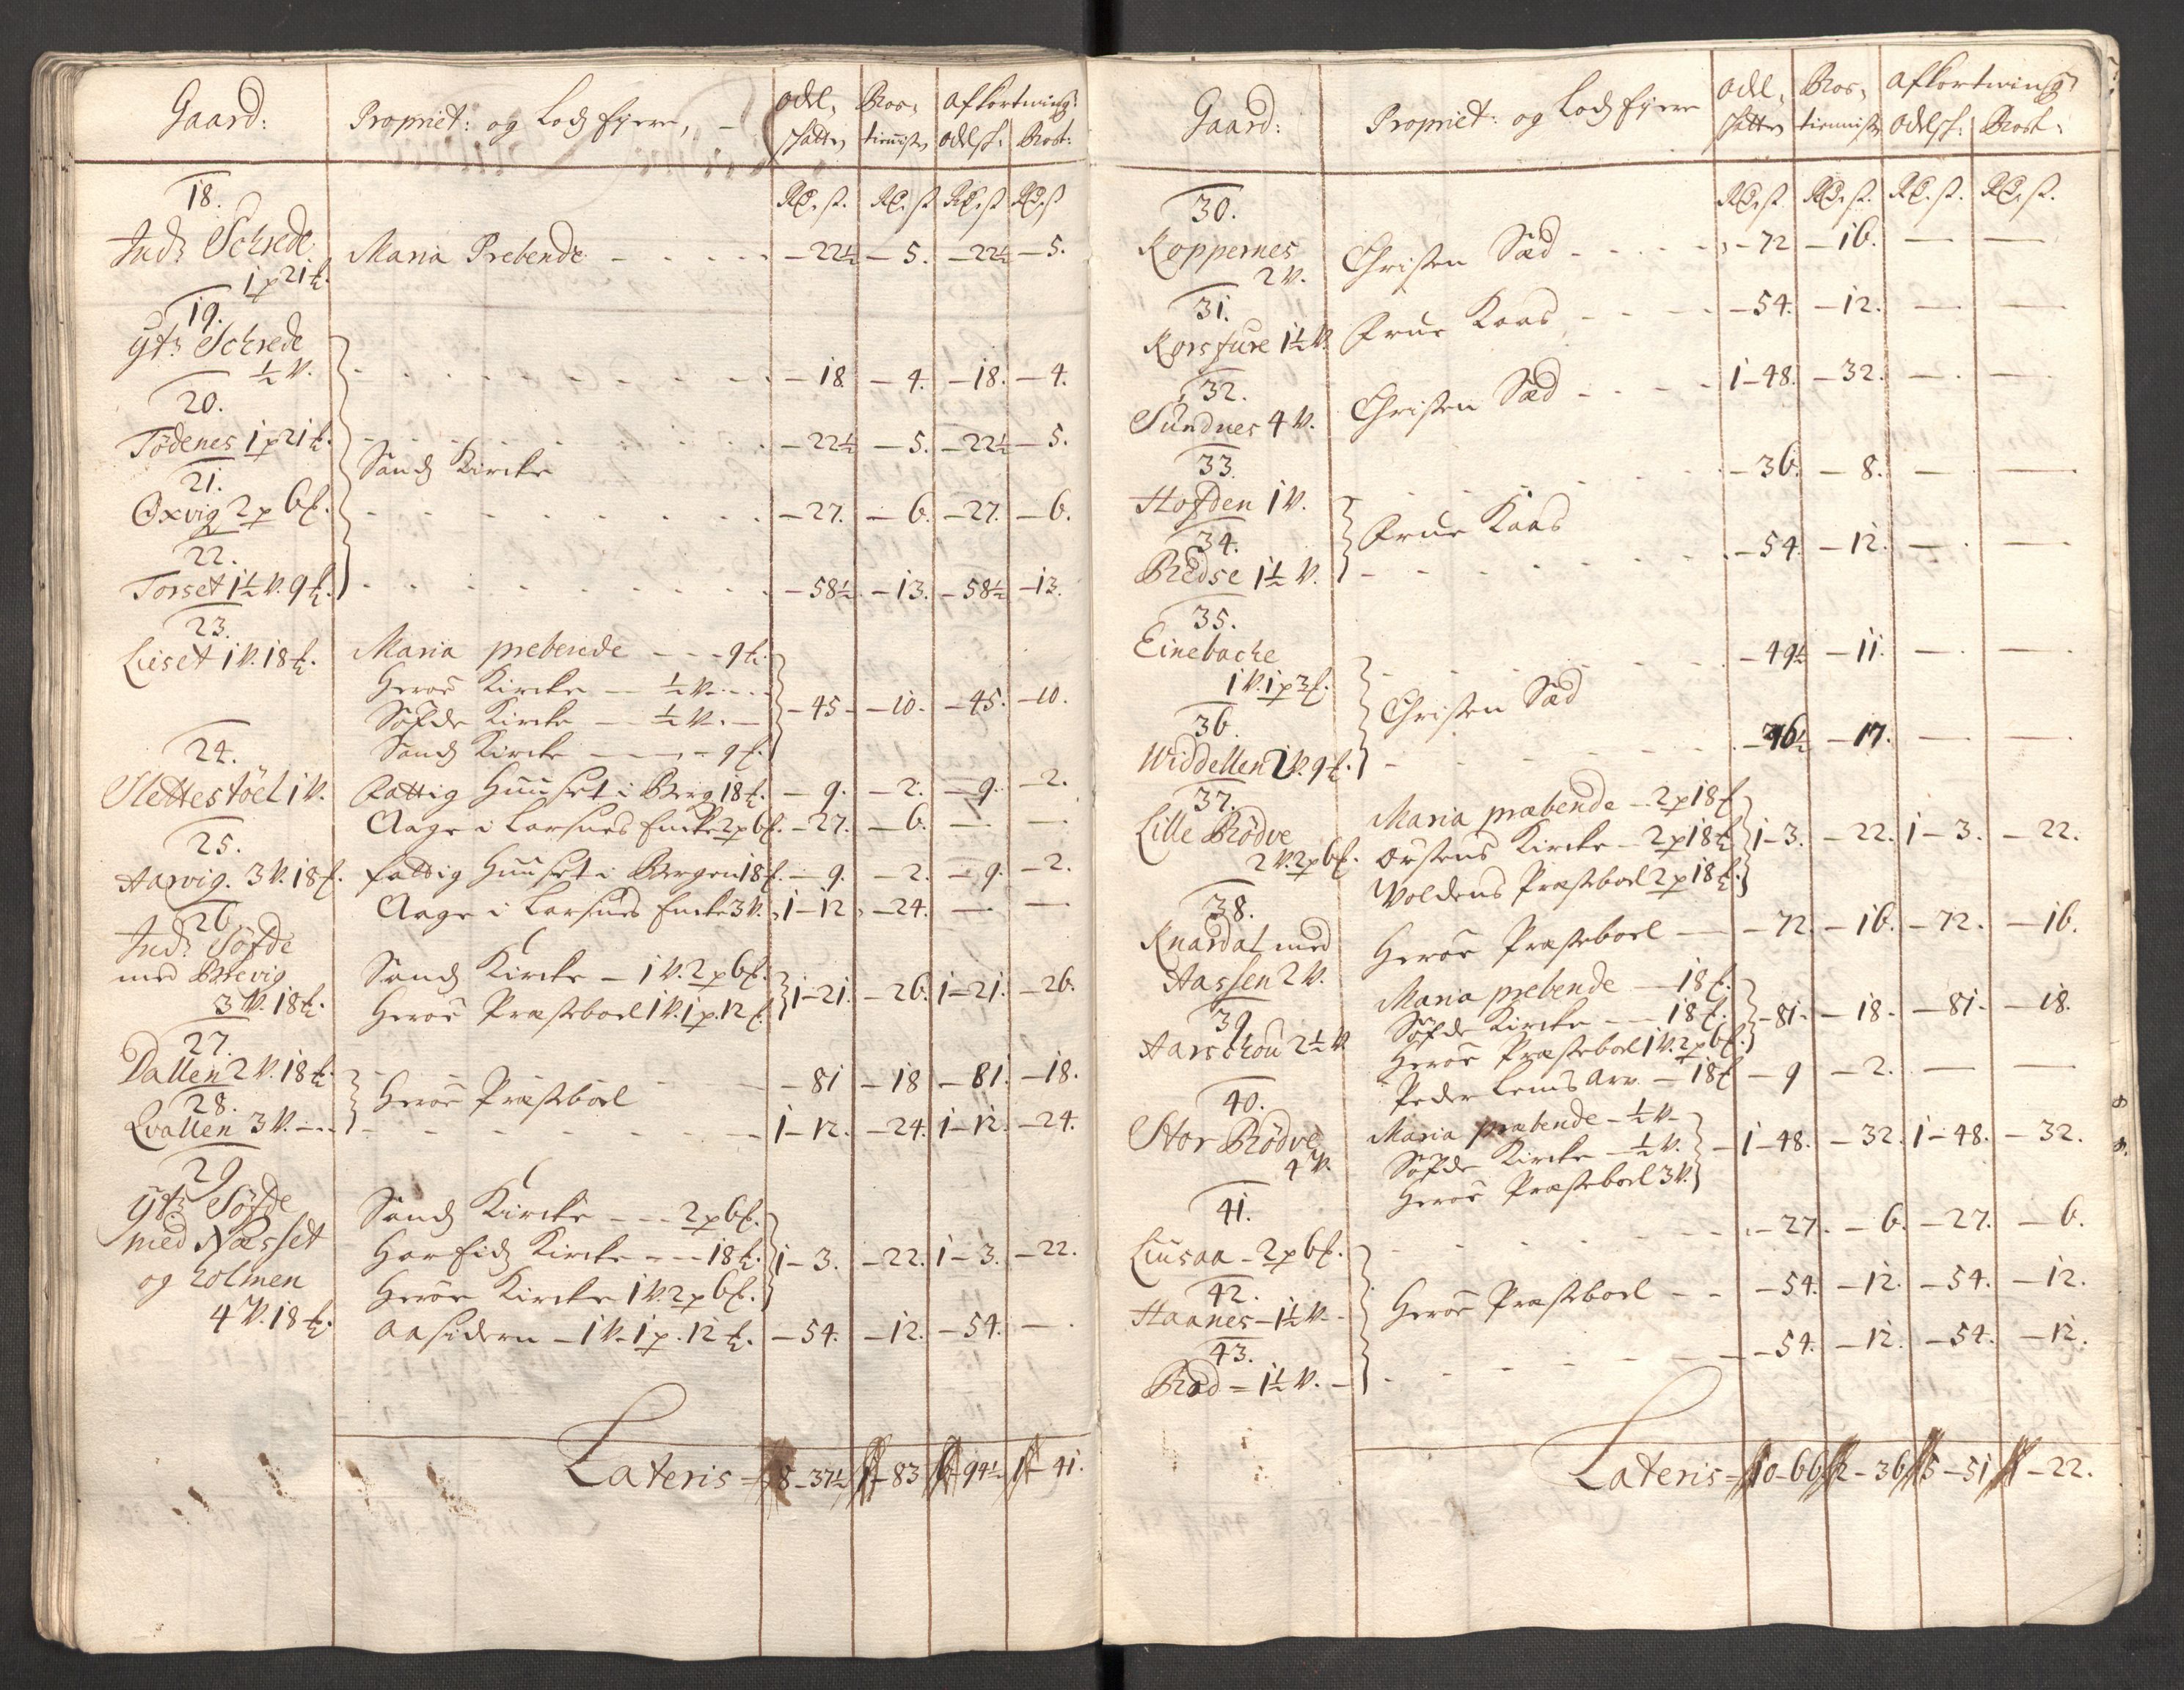 Gaard: Propriet: og Lodz Eyere, Odel- Ros- Afkortning:
skatten tienniste Odelsk: Rost:
Rd. s. Rd. s Rd. s Rd. s
18.
Ind: Schrede Maria Prebende - - - - - 22½ - 5. - 22½ - 5.
1 p 21 ℔.
19.
Yt: Schrede
½ V. - 18 - 4. - 18. - 4.
20.
Tödenes 1 p 21 ℔. - 22½ - 5. - 22½ - 5.
Sands Kircke
21.
Oxvig 2 p 6 ℔. - 27. - 6. - 27. - 6.
22.
Torset 1½ V. 9 ℔. - 58½ - 13. - 58½ - 13.
23.
Liset 1 V. 18 ℔. Maria prebende - - - 9 ℔.
Heröe Kircke - ½ V. - - -
Söfde Kircke - ½ V. - - 45 - 10. - 45. - 10.
Sands Kircke - - - 9 ℔.
24.
Slettestöel 1 V. Fattig Huuset i Berg 18 ℔. - 9. - 2. - 9. - 2.
Aage i Larsnes Encke 2 p 6 ℔. - 27. - 6. - —
25.
Aarvig. 3 V. 18 ℔. Fattig Huuset i Bergen 18 ℔. - 9. - 2. - 9. - 2.
Aage i Larsnes Encke 3 V. 1 - 12 - 24. — —
26.
Ind: Söfde
med Brevig Sands Kircke - 1 V. 2 p 6 ℔.
3 V. 18 ℔. Heröe Præsteboel 1 V. 1 p. 12 ℔. 1 - 21. - 26. 1 - 21. - 26.
27.
Dallen 2 V. 18 ℔. - 81 - 18 - 81. - 18.
Heröe Præsteboel
28.
Qvallen 3 V. - - 1 - 12. - 24. 1 - 12. - 24.
29.
Yt: Söfde Sands Kircke - - - 2 p 6 ℔.
med Næsset Harfids Kircke - - - 18 ℔. 1 - 3. - 22. 1 - 3. - 22.
og Holmen Heröe Kircke 1 V. 2 p 6 ℔.
4 V. 18 ℔. Aasidern - 1 V. 1 p. 12 ℔. - 54. - 12. - 54. - .
Lateris - 8 - 37½ 1 - 83 6 - 94½ 1 - 41.
Gaard: Propriet: og Lodz Eyere Odel- Ros- Afkortning
skatten tienniste Odelsk: Rost:
Rd. s. Rd. s. Rd. s. Rd. s.
30.
Koppernes Christen Sæd - - - - - 72 - 16. — —
2 V.
31.
Korsfure 1½ V. Frue Kaas - - - - 54. - 12. — —
32.
Sundnes 4 V. Christen Sæd - - - 1 - 48. - 32. — —
33.
Hofden 1 V. - 36. - 8. — —
Frue Kaas
34.
Bredse 1½ V. - 54. - 12. — —
35.
Einebache
1 V. 1 p 3 ℔. - 49½ - 11. — —
Christen Sæd
36.
Widdellen 2 V. 9 ℔. - 76½ - 17. — —
37.
Lille Rödve Maria præbende - 2 p 18 ℔
2 V. 2 p 6 ℔. Örstens Kircke - 2 p 18 ℔ 1 - 3. - 22. 1 - 3. - 22.
Woldens Præsteboel 2 p 18 ℔.
38.
Knardal med Heröe Præsteboel — - 72. - 16. - 72. - 16.
Aassen 2 V.
39. Maria prebende - 18 ℔.
Aarschou 2½ V Söfde Kircke - - 18 ℔. - 81 - - 18. - 81 - - 18.
Heröe Præsteboel 1 V. 2 p 6 ℔.
Peder Lems Arv. - 18 ℔ - 9 - 2. — —
40.
Stor Rödve Maria præbende - ½ V -
4 V. Söfde Kircke - ½ V. - 1 - 48. - 32. 1 - 48. - 32.
Heröe Præsteboel 3 V.
41.
Liusaa - 2 p 6 ℔. - 27. - 6. - 27. - 6.
42.
Haanes - 1½ V - Heröe Præsteboel - - - 54. - 12. - 54. - 12.
43.
Röd = 1½ V. - - 54. - 12. - 54. - 12.
Lateris - 10 - 66 2 - 36 5 - 51 1 - 22.